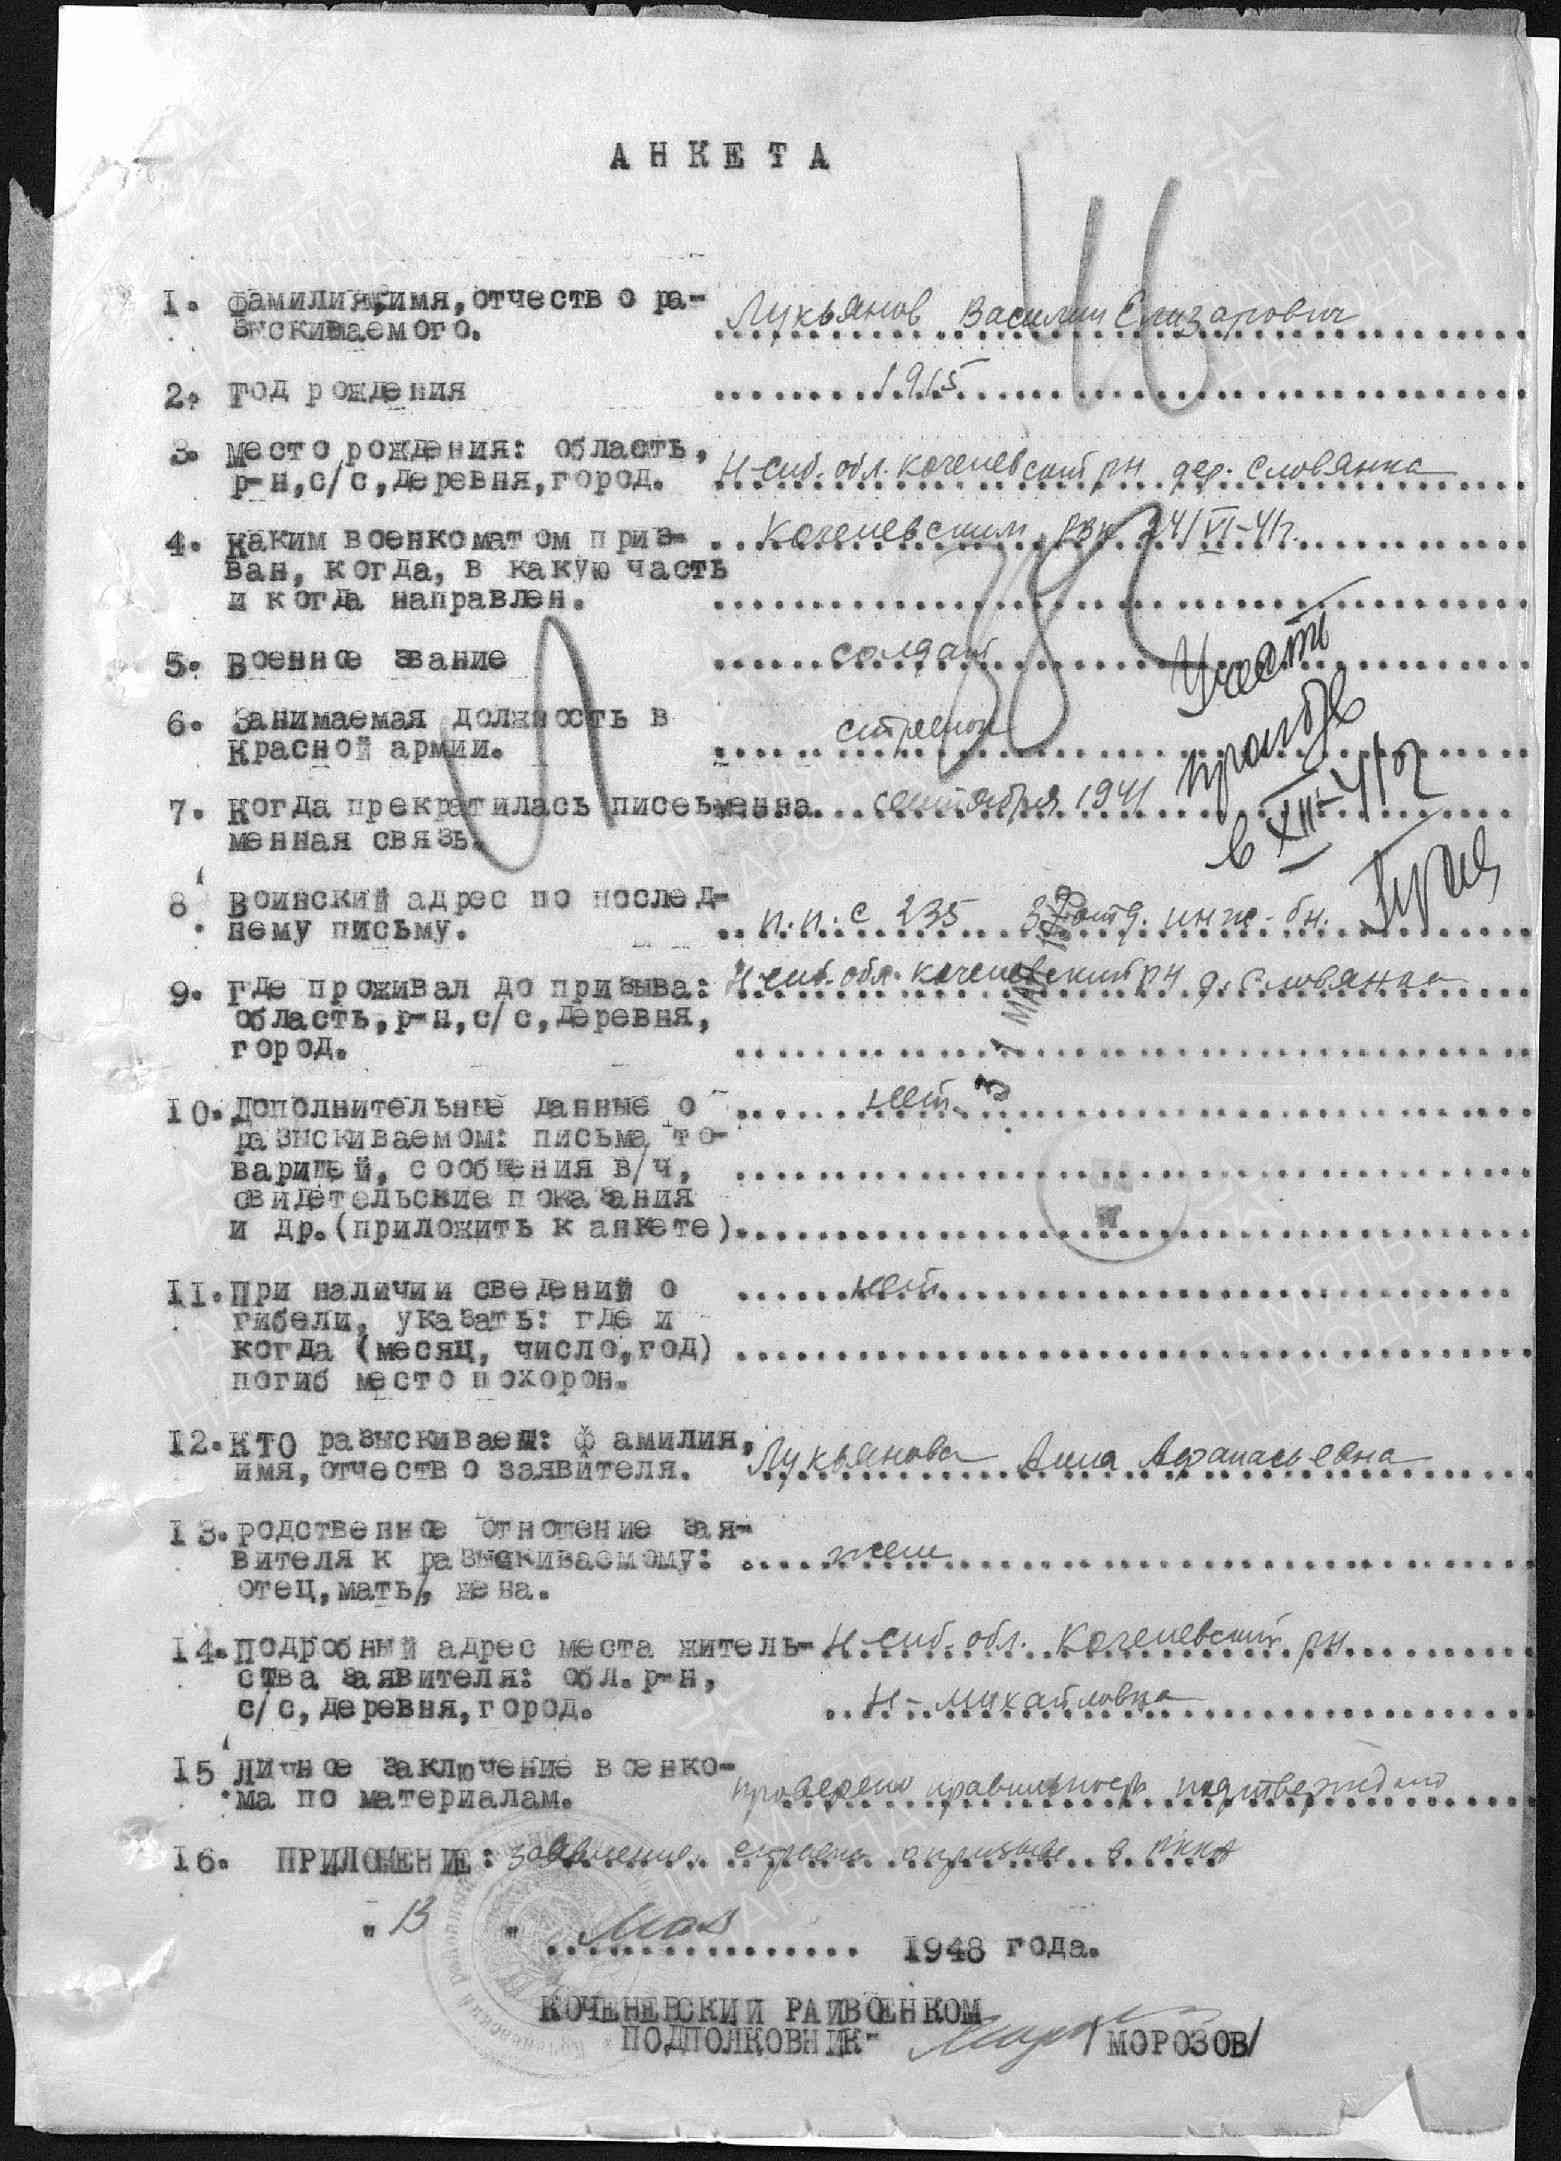 АНКЕТА
1. фамилия, имя, отчество ра- Лукьянов Василий Елизарович
зыскиваемого.
2. год рождения 1915
3. место рождения: область,
р-н, с/с, деревня, город. Н-Сиб. обл. Коченевский рн дер. Словянка
4. каким военкоматом приз- Коченевским РВК 24/VI-41г.
ван, когда, в какую часть
и когда направлен.
5. военное звание солдат
6. Занимаемая должность в стрелок
красной армии.
7. когда прекратилась письеьменна сентября 1941
менная связь.
Учесть
пропавш
в XII-41г
8. воинский адрес по послед-
нему письму. п.п.с 235 отд. инж-бн.
9. где проживал до призыва: Н-сиб. обл. Коченевский рн д. Словянка
область, р-н, с/с, деревня,
город.
31 МАЯ
10. Дополнительные данные о нет
разыскиваемом: письма то-
варищей, сообщения в/ч,
свидетельские показания
и др. (приложить к анкете)
11. При наличии сведений о нет
гибели, указать: где и
когда (месяц, число, год)
погиб место похорон.
12. КТО разыскивает: фамилия,
имя, отчество заявителя. Лукьянова Анна Афанасьевна
13. родственное отношение зая-
вителя к разыскиваемому: жена
отец, мать, жена.
14. подробный адрес места житель- Н-сиб. обл. Коченевский рн
ства заявителя: обл. р-н,
с/с, деревня, город. Н-михайловка
15. личное заключение военко-
ма по материалам. проверено правильность подтверждаю
16. ПРИЛОЖЕНИЕ: заявление, о призыве в РККА
" 13 " Мая 1948 года.
КОЧЕНЕВСКИЙ РАЙВОЕНКОМ
ПОДПОЛКОВНИК- /МОРОЗОВ/
ПАМЯТЬ НАРОДА